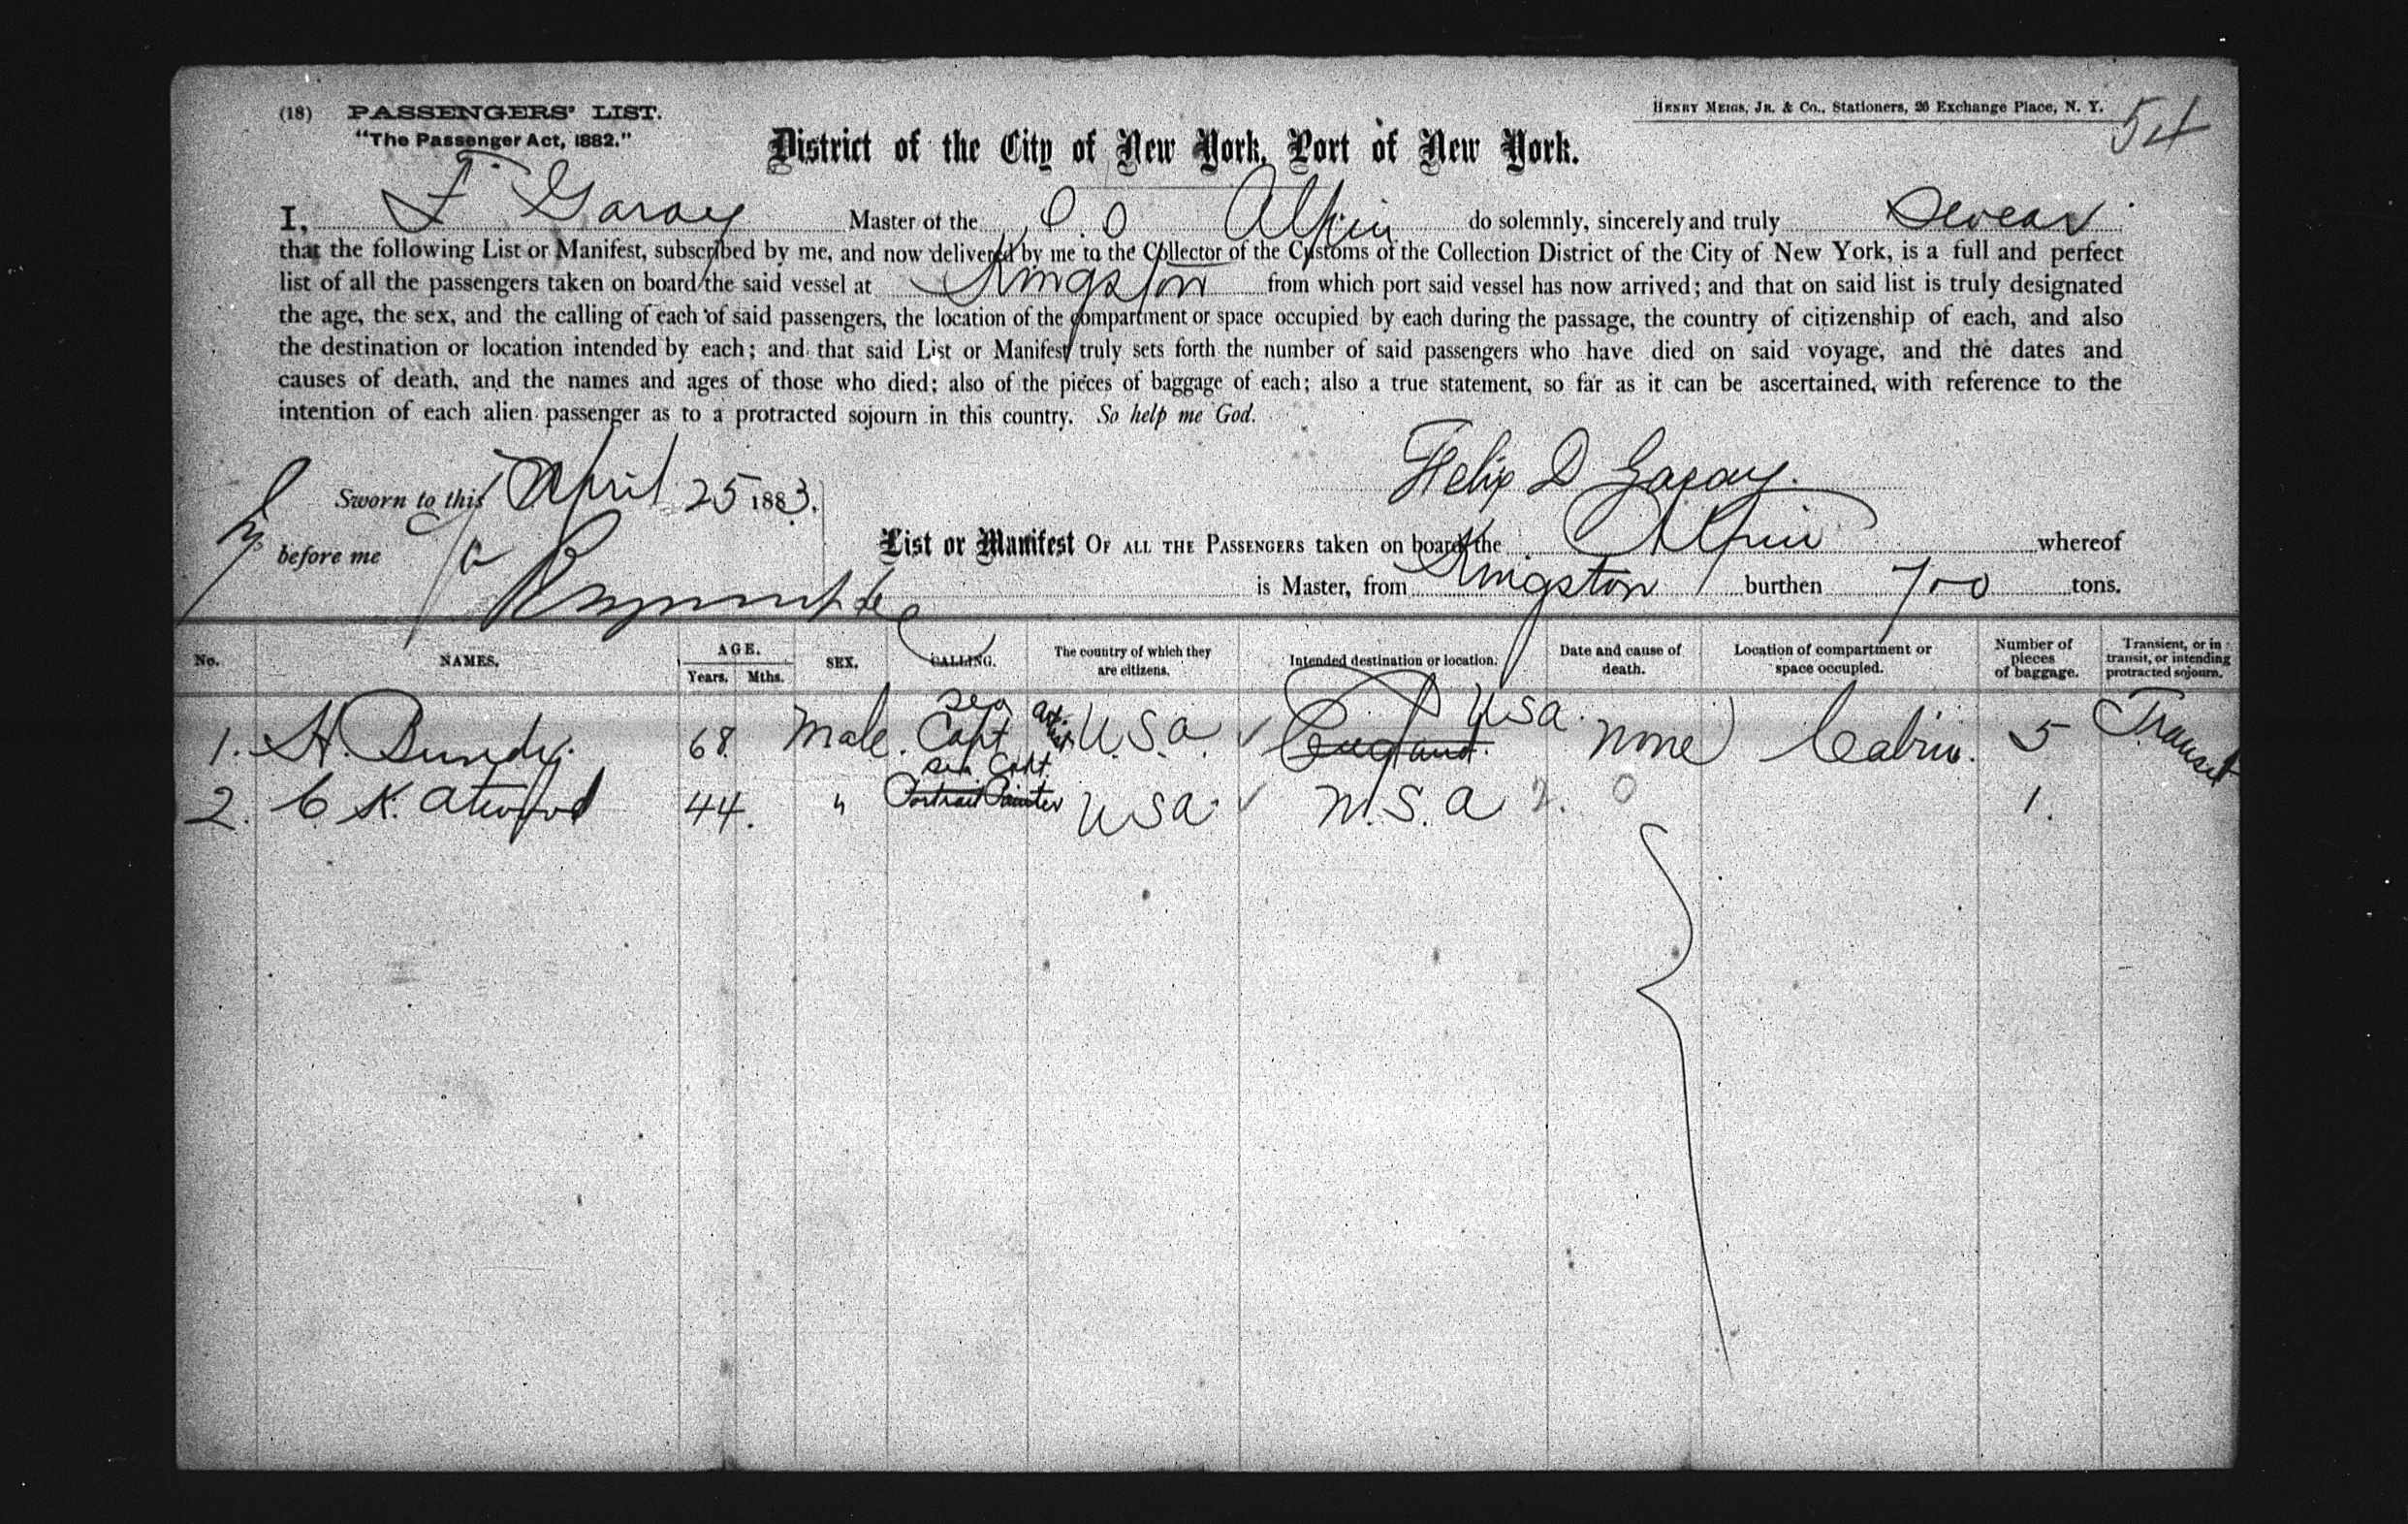 (18) PASSENGERS' LIST.
"The Passenger Act, 1882."
HENRY MEIGS, JR. & CO., Stationers, 26 Exchange Place, N. Y.
54
District of the City of New York, Port of New York.
I, F Garay Master of the S.S Alpin do solemnly, sincerely and truly Swear
that the following List or Manifest, subscribed by me, and now delivered by me to the Collector of the Customs of the Collection District of the City of New York, is a full and perfect
list of all the passengers taken on board the said vessel at Kingston from which port said vessel has now arrived; and that on said list is truly designated
the age, the sex, and the calling of each of said passengers, the location of the compartment or space occupied by each during the passage, the country of citizenship of each, and also
the destination or location intended by each; and that said List or Manifest truly sets forth the number of said passengers who have died on said voyage, and the dates and
causes of death, and the names and ages of those who died; also of the pieces of baggage of each; also a true statement, so far as it can be ascertained, with reference to the
intention of each alien passenger as to a protracted sojourn in this country. So help me God.
Felix D Garay.
Sworn to this April 25 1883.
before me
List or Manifest OF ALL THE PASSENGERS taken on board the Alpin whereof
is Master, from Kingston burthen 700 tons.
No. NAMES. AGE. Years. Mths. SEX. CALLING. The country of which they are citizens. Intended destination or location. Date and cause of death. Location of compartment or space occupied. Number of pieces of baggage. Transient, or in transit, or intending protracted sojourn.
1. H. Bundy. 68 Male. Sea Capt U.S.a. England USa. None Cabin. 5 Transit
2. C. K. Atwood 44. " Portrait Painter Sea Capt. USa U.S.a 2. 0 1.